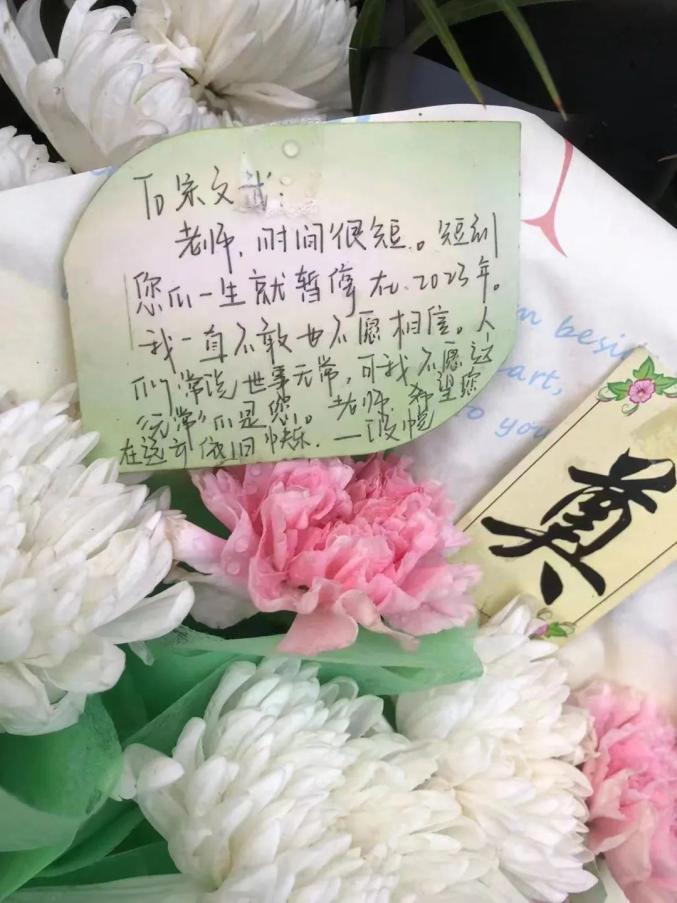 To 宋文武：
老师，时间很短。短到
您的一生就暂停在 2023年。
我一直不敢也不愿相信。人
们常说世事无常，可我不愿这
“无常”的是您。老师，希望您
在远方依旧快乐。—
n besi
art,
o you
奠